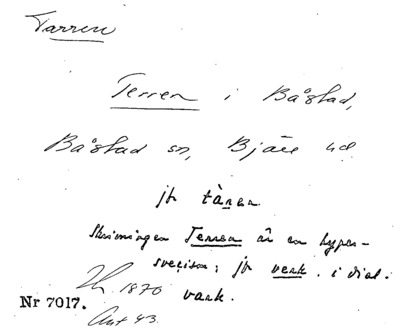 Tarren
Terren i Båstad,
Båstad sn, Bjäre hd
jfr tàren
Skrivningen Terren är en hyper-
svecism; jfr verk i dial.
vark.
1870
Nr 7017.
Ant 43